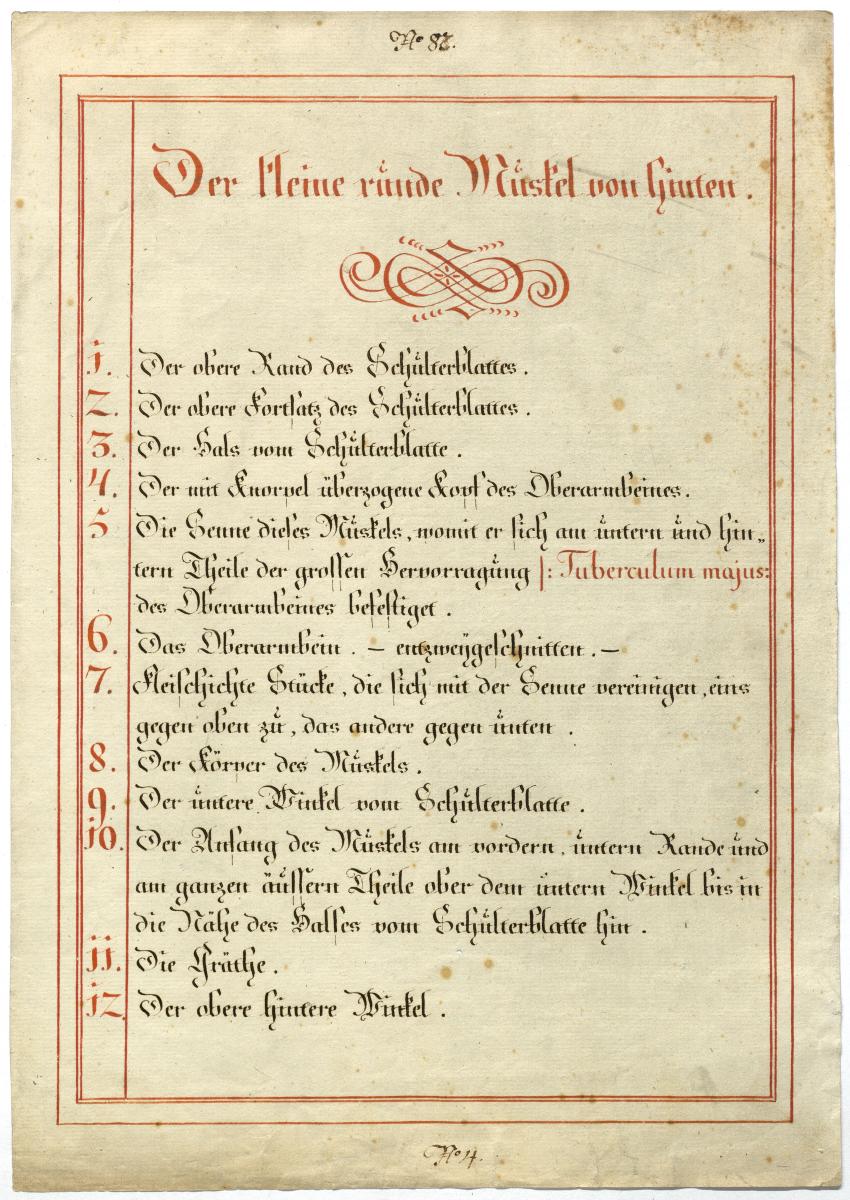 No 82.
Der kleine runde Muskel von hinten.
1. Der obere Rand des Schulterblattes.
2. Der obere Fortsatz des Schulterblattes.
3. Der Hals vom Schulterblatte.
4. Der mit Knorpel überzogene Kopf des Oberarmbeines.
5 Die Senne dieses Muskels, womit er sich am untern und hin„
tern Theile der grossen Hervorragung |: Tuberculum majus:
des Oberarmbeines befestiget.
6. Das Oberarmbein. – entzweygeschnitten. –
7. Fleischichte Stücke, die sich mit der Senne vereinigen, eins
gegen oben zu, das andere gegen unten.
8. Der Körper des Muskels.
9. Der untere Winkel vom Schulterblatte.
10. Der Anfang des Muskels am vordern, untern Rande und
am ganzen äussern Theile ober dem untern Winkel bis in
die Nähe des Halses vom Schulterblatte hin.
11. Die Gräthe.
12. Der obere hintere Winkel.
No 4.